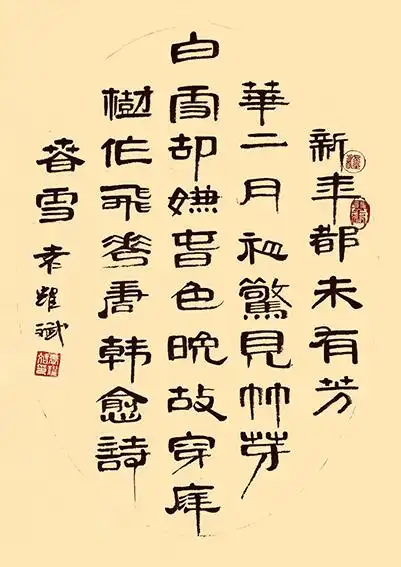 新年都未有芳
華二月初驚見艸芽
白雪却嫌春色晚故穿庭
樹作飛花唐韓愈詩
春雪 耀斌